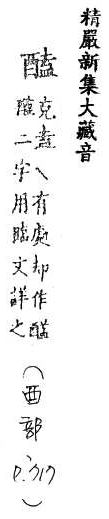 精嚴新集大藏音
醘
克盍〵有處却作醯
醢二字用臨文詳之
（酉部 p.317）